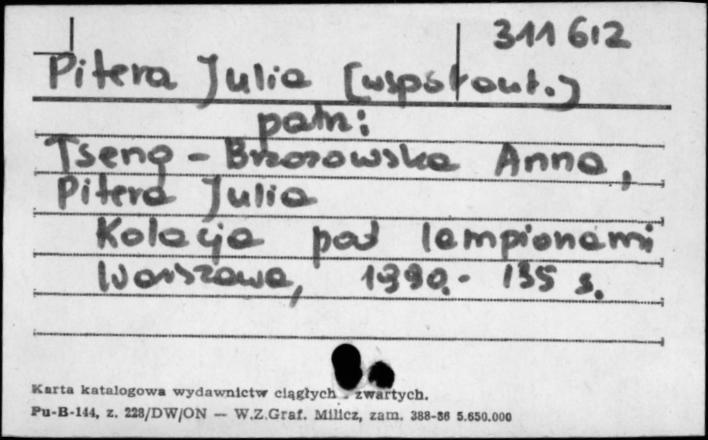 311 612
Pitera Julia [współaut.]
patrz:
Tseng - Brzozowska Anna,
Pitera Julia
Kolacja pod lampionami
Warszawa, 1990.- 135 s.
Karta katalogowa wydawnictw ciągłych - zwartych.
Pu-B-144, z. 228/DW/ON — W.Z.Graf. Milicz, zam. 388-86 5.650.000